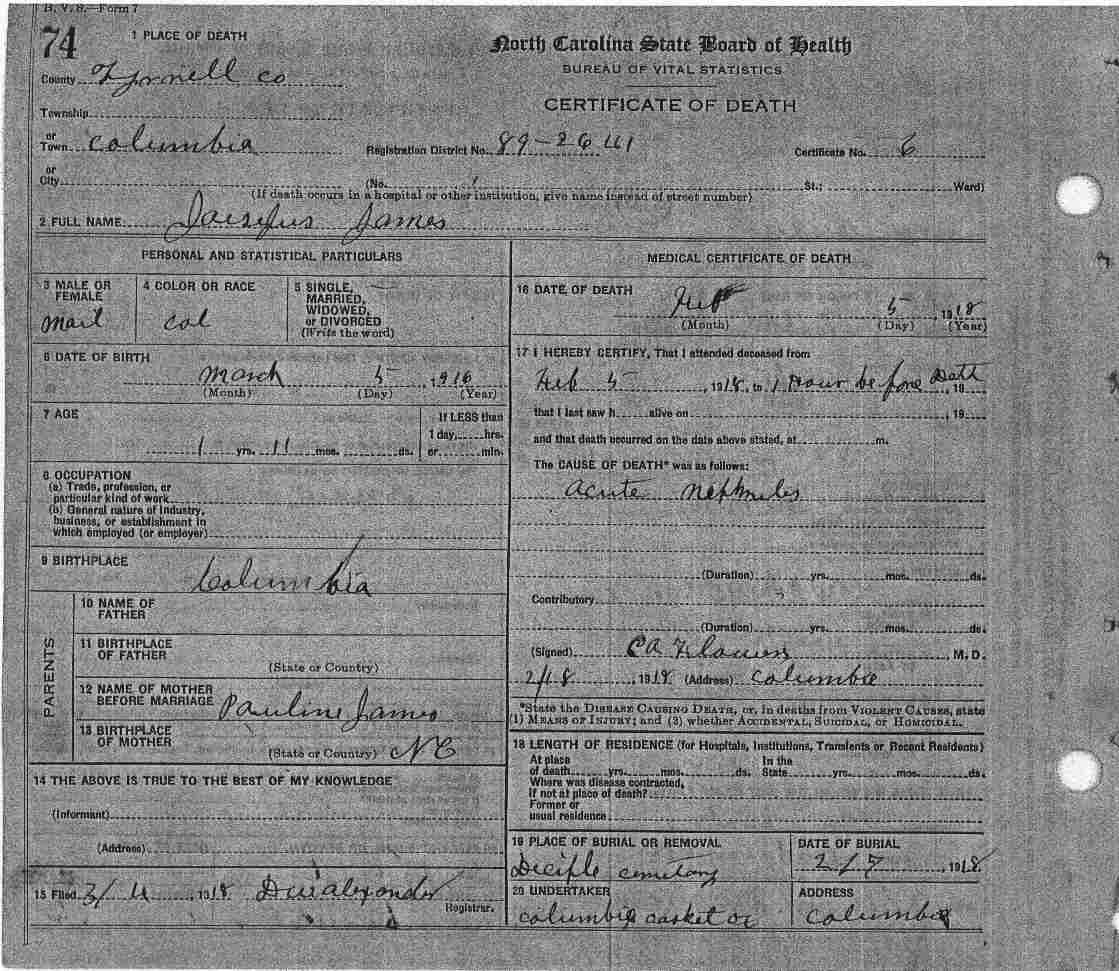 B. V. S.—Form 7
74
1 PLACE OF DEATH
North Carolina State Board of Health
BUREAU OF VITAL STATISTICS
CERTIFICATE OF DEATH
County Tyrrell co
Township
or
Town columbia
Registration District No. 89-26
Certificate No. 6
or
City
(No.
St.; Ward)
(If death occurs in a hospital or other institution, give name instead of street number)
2 FULL NAME James
PERSONAL AND STATISTICAL PARTICULARS
3 MALE OR FEMALE
mail
4 COLOR OR RACE
col
5 SINGLE, MARRIED, WIDOWED, or DIVORCED
(Write the word)
6 DATE OF BIRTH
March 5, 1916
(Month) (Day) (Year)
7 AGE
1 yrs. 11 mos. ds.
If LESS than
1 day, hrs.
or min.
8 OCCUPATION
(a) Trade, profession, or
particular kind of work
(b) General nature of industry,
business, or establishment in
which employed (or employer)
9 BIRTHPLACE
Columbia
PARENTS
10 NAME OF FATHER
11 BIRTHPLACE OF FATHER
(State or Country)
12 NAME OF MOTHER BEFORE MARRIAGE Pauline James
13 BIRTHPLACE OF MOTHER
(State or Country) NC
14 THE ABOVE IS TRUE TO THE BEST OF MY KNOWLEDGE
(Informant)
(Address)
15 Filed 3/4, 1918
Registrar.
MEDICAL CERTIFICATE OF DEATH
16 DATE OF DEATH
Feb 5, 1918
(Month) (Day) (Year)
17 I HEREBY CERTIFY, That I attended deceased from
Feb 5, 1918, to 1 Hour before Deth, 19
that I last saw h alive on, 19
and that death occurred on the date above stated, at m.
The CAUSE OF DEATH* was as follows:
acute
(Duration) yrs. mos. ds.
Contributory
(Duration) yrs. mos. ds.
(Signed) , M. D.
2/18, 1918 (Address) Columbia
*State the DISEASE CAUSING DEATH, or, in deaths from VIOLENT CAUSES, state
(1) MEANS OF INJURY; and (2) whether ACCIDENTAL, SUICIDAL, or HOMICIDAL.
18 LENGTH OF RESIDENCE (for Hospitals, Institutions, Transients or Recent Residents)
At place of death yrs. mos. ds.
In the State yrs. mos. ds.
Where was disease contracted,
If not at place of death?
Former or
usual residence
19 PLACE OF BURIAL OR REMOVAL
Deciple cemetary
DATE OF BURIAL
2/7, 1918
20 UNDERTAKER
columbia casket co
ADDRESS
columbia